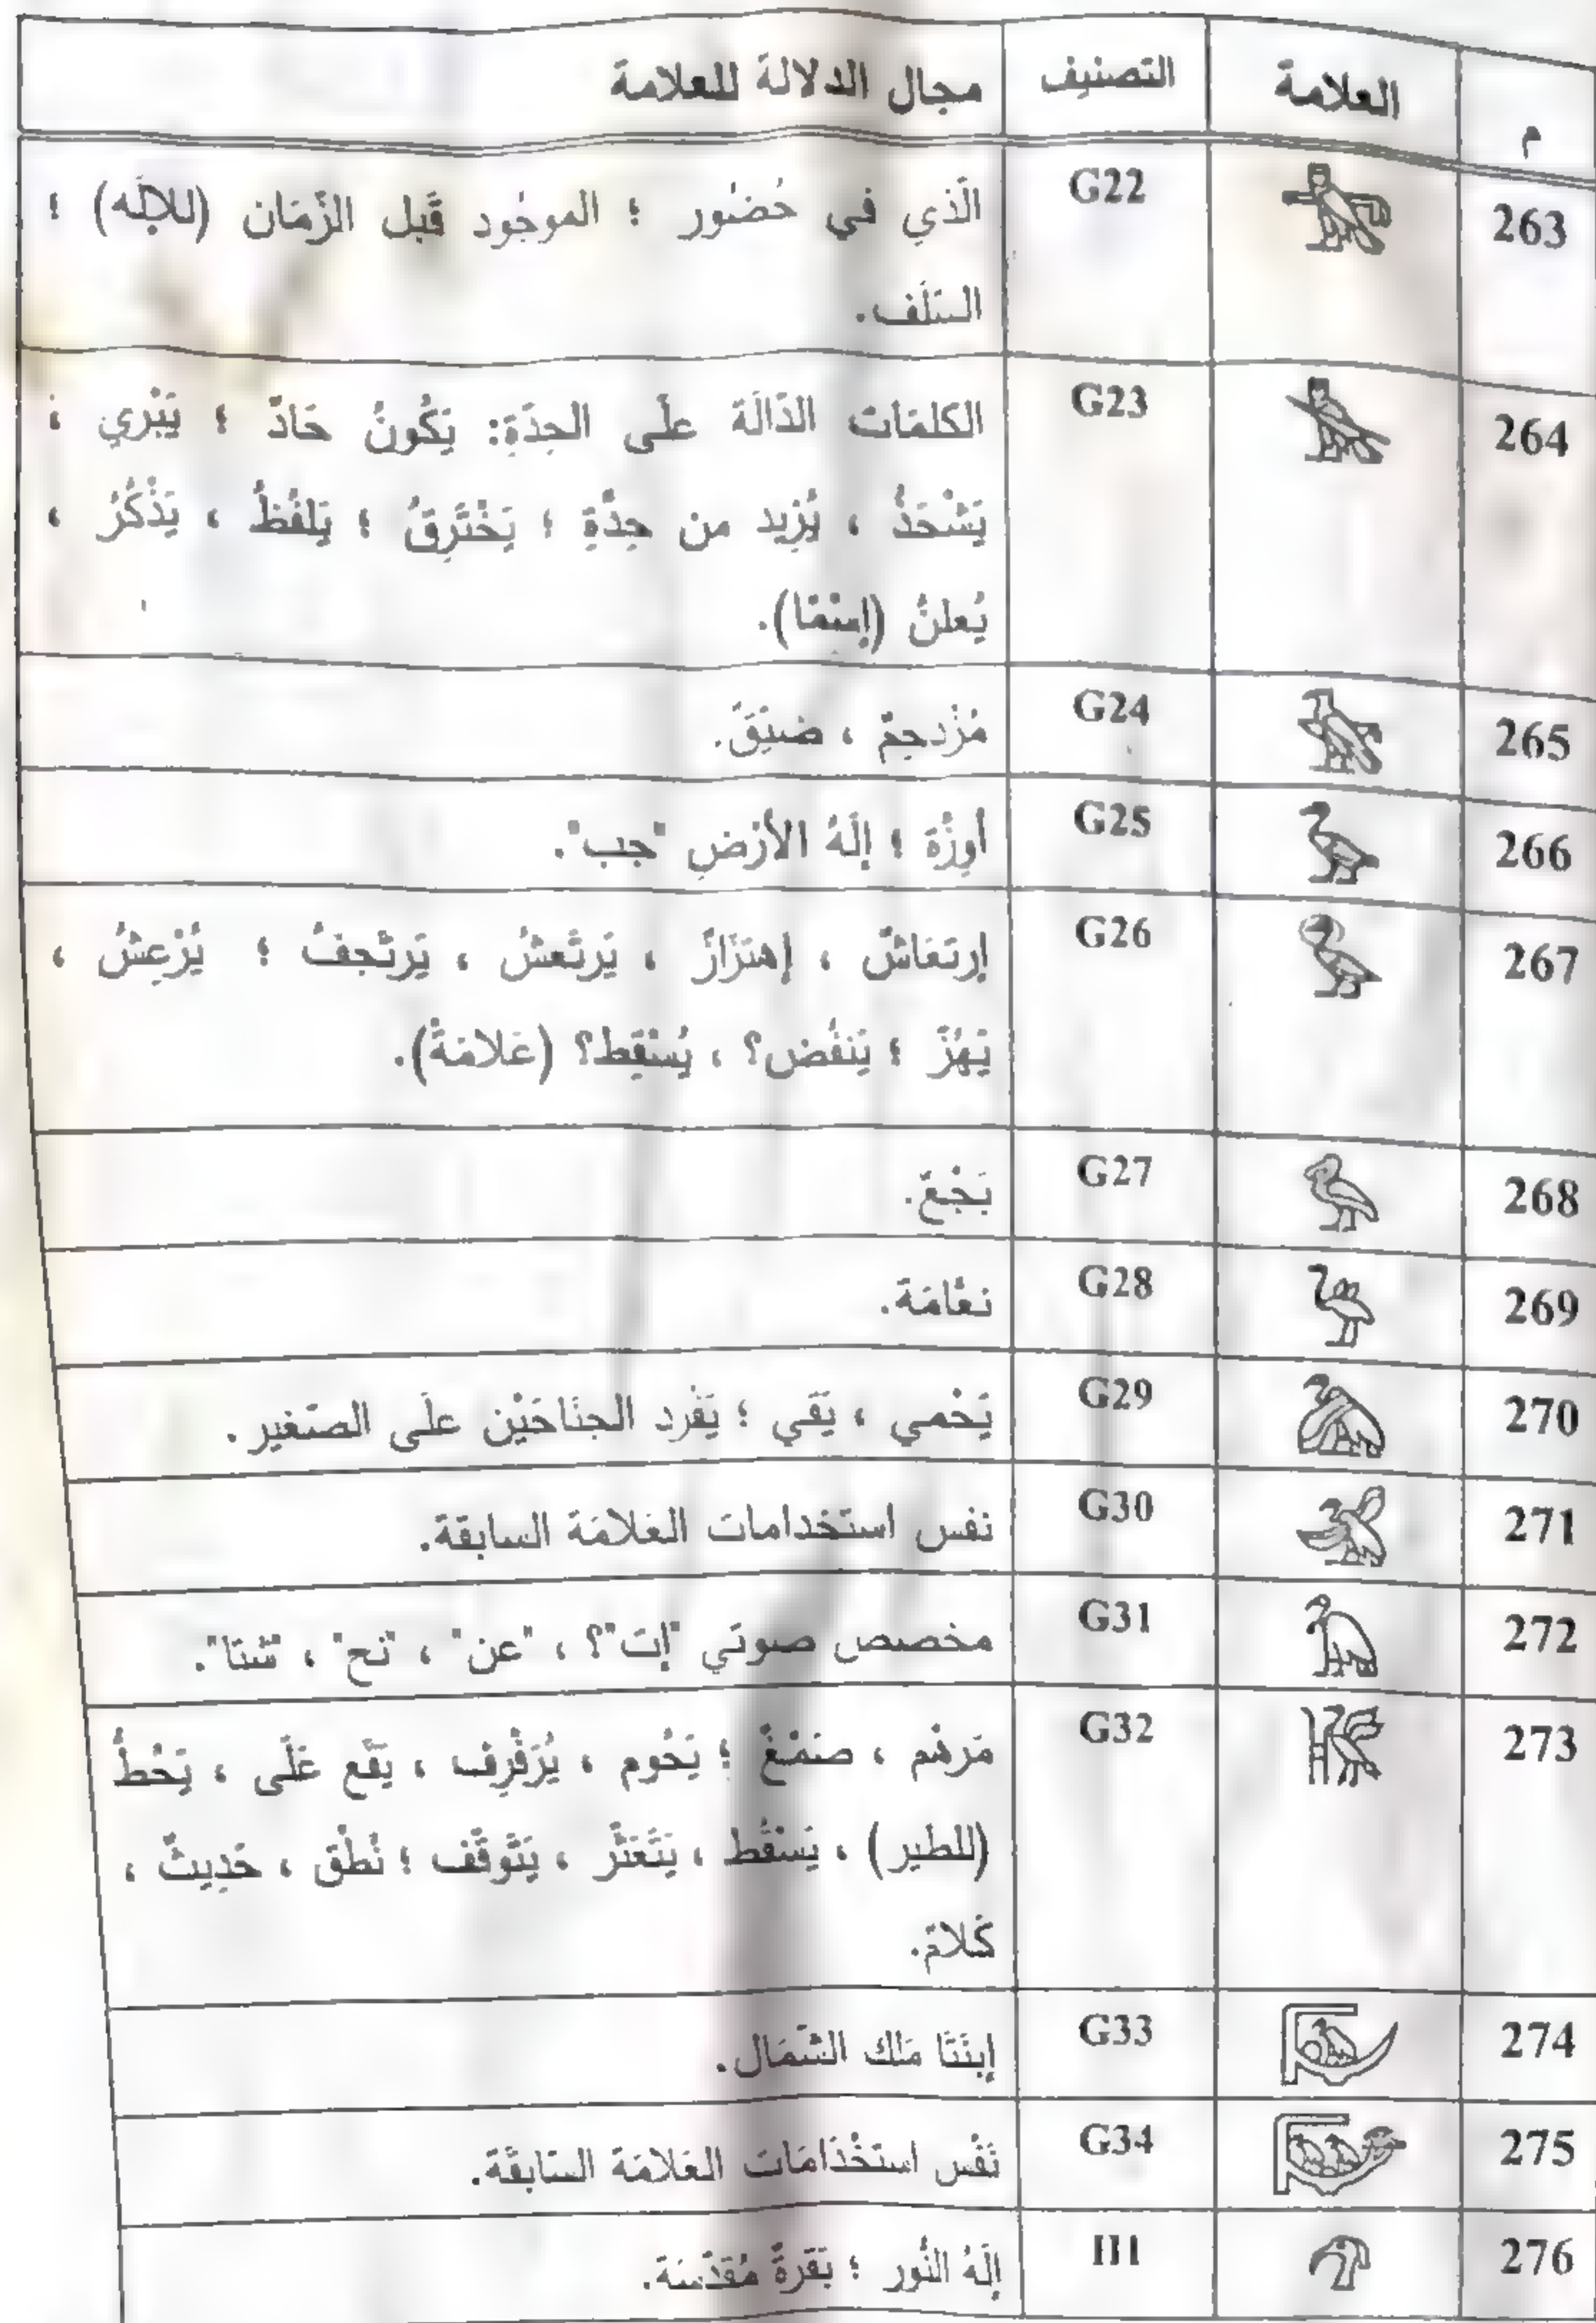 م العلامة التصنيف مجال الدلالة للعلامة
263 G22 الَّذي في حُضُور ؛ الموجُود قَبل الزَّمَان (للإلَه) ؛
السَّلَف.
264 G23 الكلمَات الدَّالَة علَى الحِدَّةِ: يَكُونُ حَادّ ؛ يَبْرِي ،
يَشْحَذُ ، يُزِيد من حِدَّةِ ؛ يَخْتَرِقُ ؛ يَلفُظُ ، يَذْكُرُ ،
يُعلنُ (إسْمًا).
265 G24 مُزْدحِمٌ ، ضيِّقٌ.
266 G25 أوِزَّة ؛ إلَهُ الأرْضِ "جب".
267 G26 إرتعَاشٌ ، إهتزَازٌ ، يَرتَعشُ ، يَرتَجفُ ؛ يُرْعِشُ ،
يَهُزّ ؛ يَنفُض؟ ، يُسْقِط؟ (عَلامَةً).
268 G27 بَجْعٌ.
269 G28 نعَّامَة.
270 G29 يَحْمي ، يَقي ؛ يَفْرد الجنَاحَيْن علَى الصَّغير.
271 G30 نفس استخدامات العَلامَة السابقة.
272 G31 مخصص صوتي "إت"؟ ، "عن" ، "نح" ، "شتا".
273 G32 مَرهْم ، صَمْغٌ ؛ يَحُوم ، يُرَفْرِف ، يَقَع عَلَى ، يَحُطُّ
(للطير) ، يَسْقُط ، يَتَعَثَّر ، يَتَوقَّف ؛ نُطْق ، حَدِيثٌ ،
كَلامٌ.
274 G33 إبنَتَا مَلك الشَّمَال.
275 G34 نَفْس استخْدَامَات العَلامَة السَّابقَة.
276 H1 إلَهُ النُّور ؛ بَقَرةً مُقَدَّسَة.